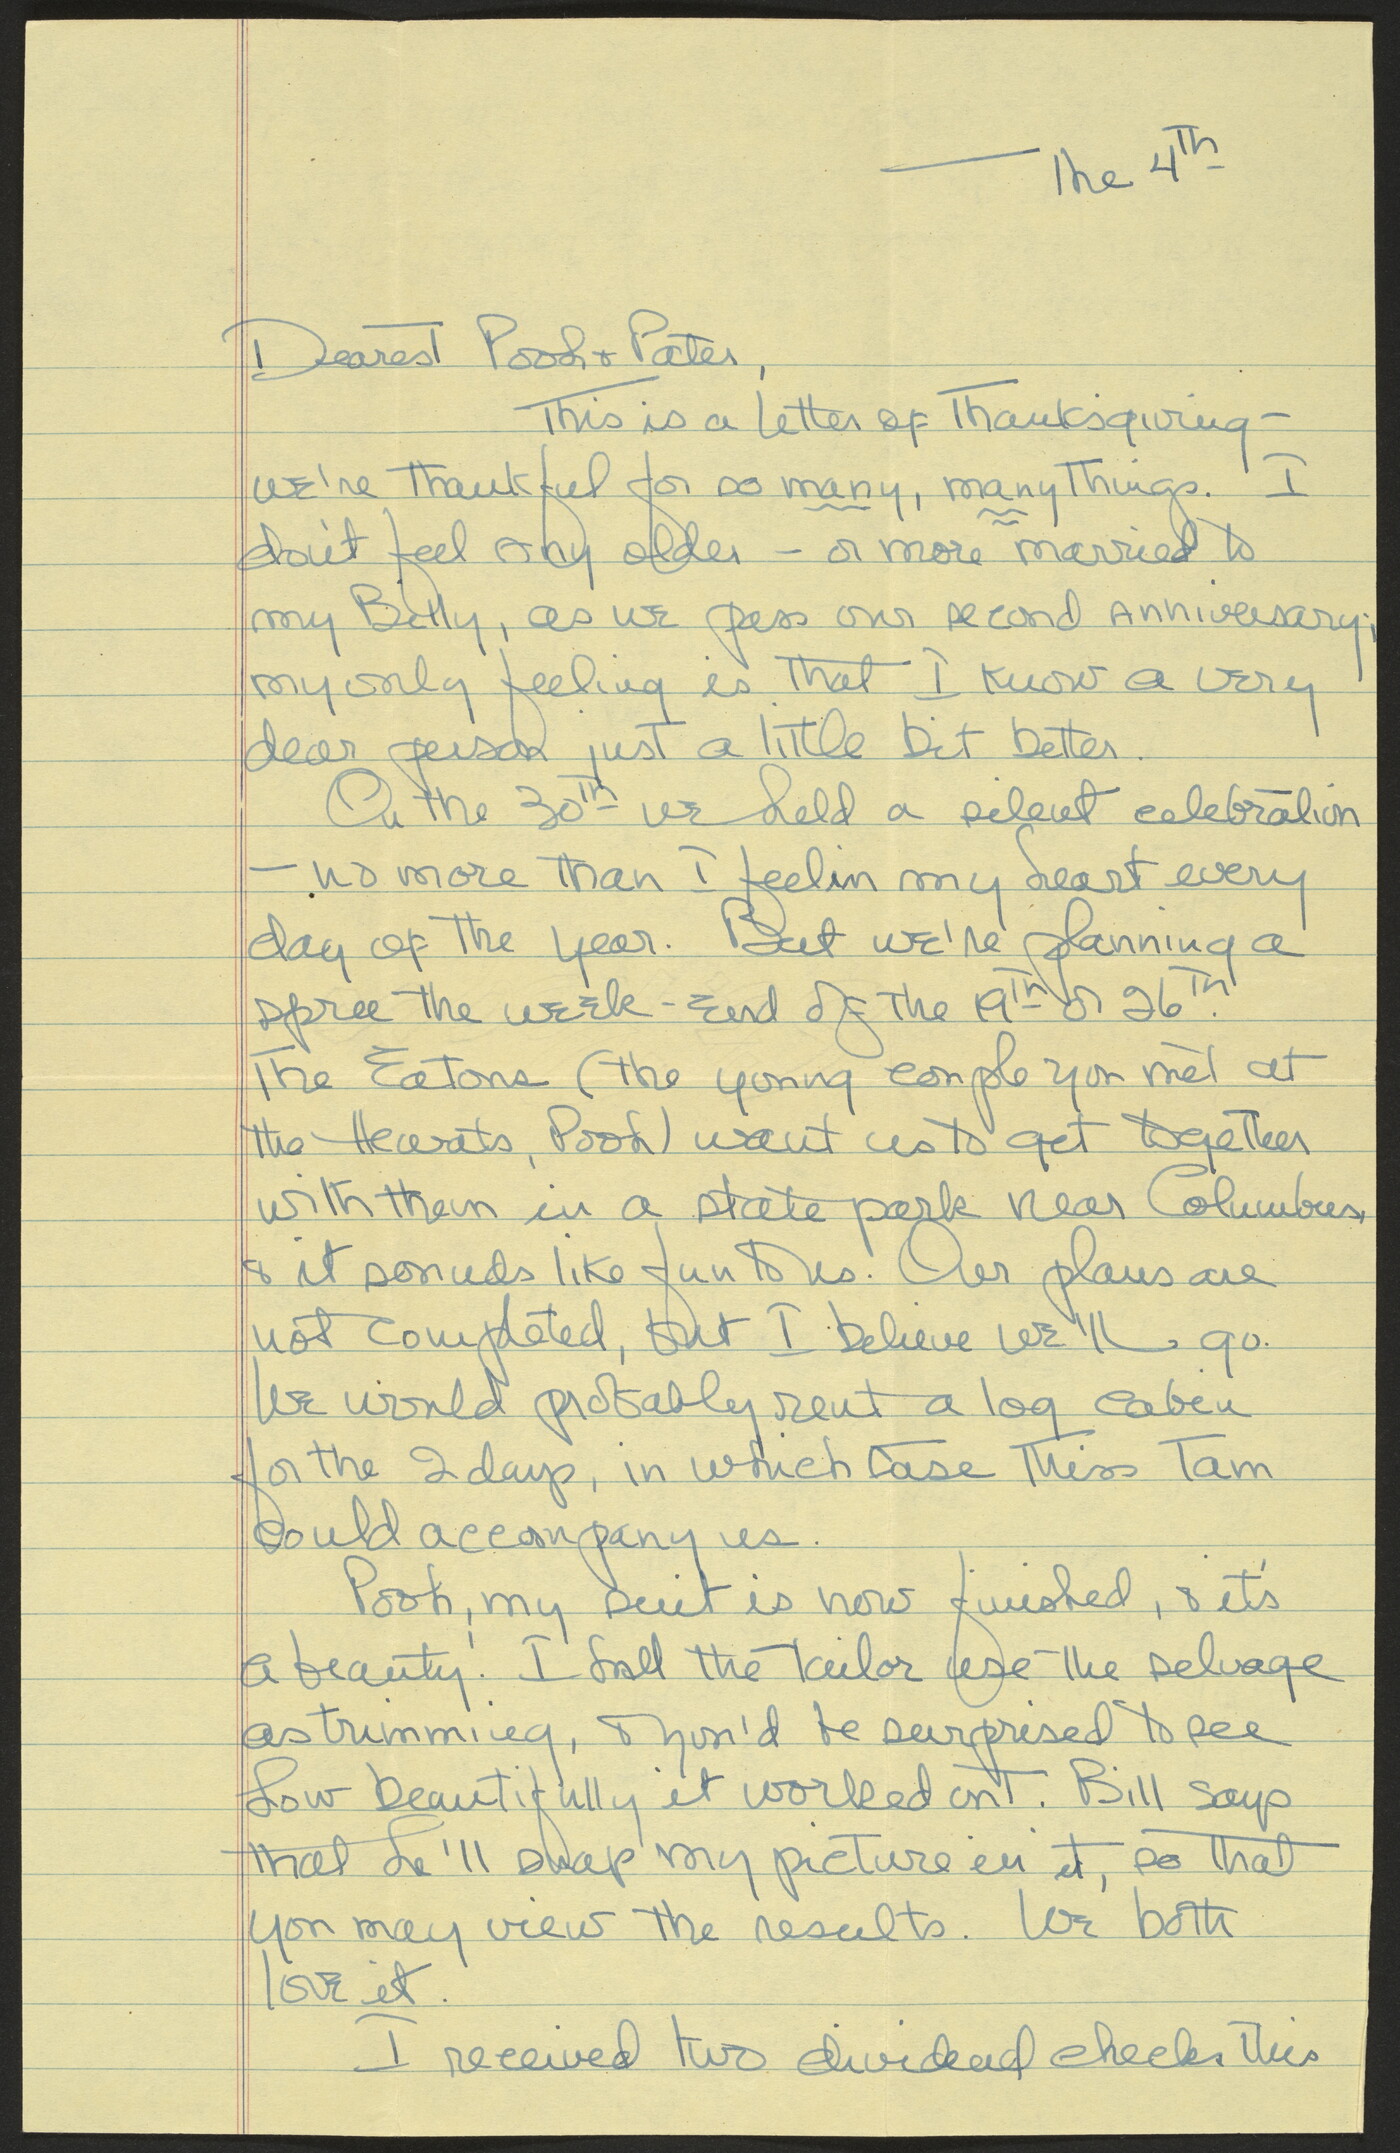 — The 4th
Dearest Pooh & Pater,
This is a letter of Thanksgiving –
we're thankful for so many, many things. I
don't feel any older – or more married to
my Billy, as we pass our second anniversary;
my only feeling is that I know a very
dear person just a little bit better.
On the 30th we held a silent celebration
– no more than I feel in my heart every
day of the year. But we're planning a
spree the week-end of the 19th or 26th.
The Eatons (the young couple you met at
the Hearats, Pooh) want us to get together
with them in a state park near Columbus,
& it sounds like fun to us. Our plans are
not completed, but I believe we'll go.
We would probably rent a log cabin
for the 2 days, in which case Miss Tam
could accompany us.
Pooh, my suit is now finished, & it's
a beauty! I had the tailor use the selvage
as trimming, & you'd be surprised to see
how beautifully it worked out. Bill says
that he'll snap my picture in it, so that
you may view the results. We both
love it.
I received two dividend checks this